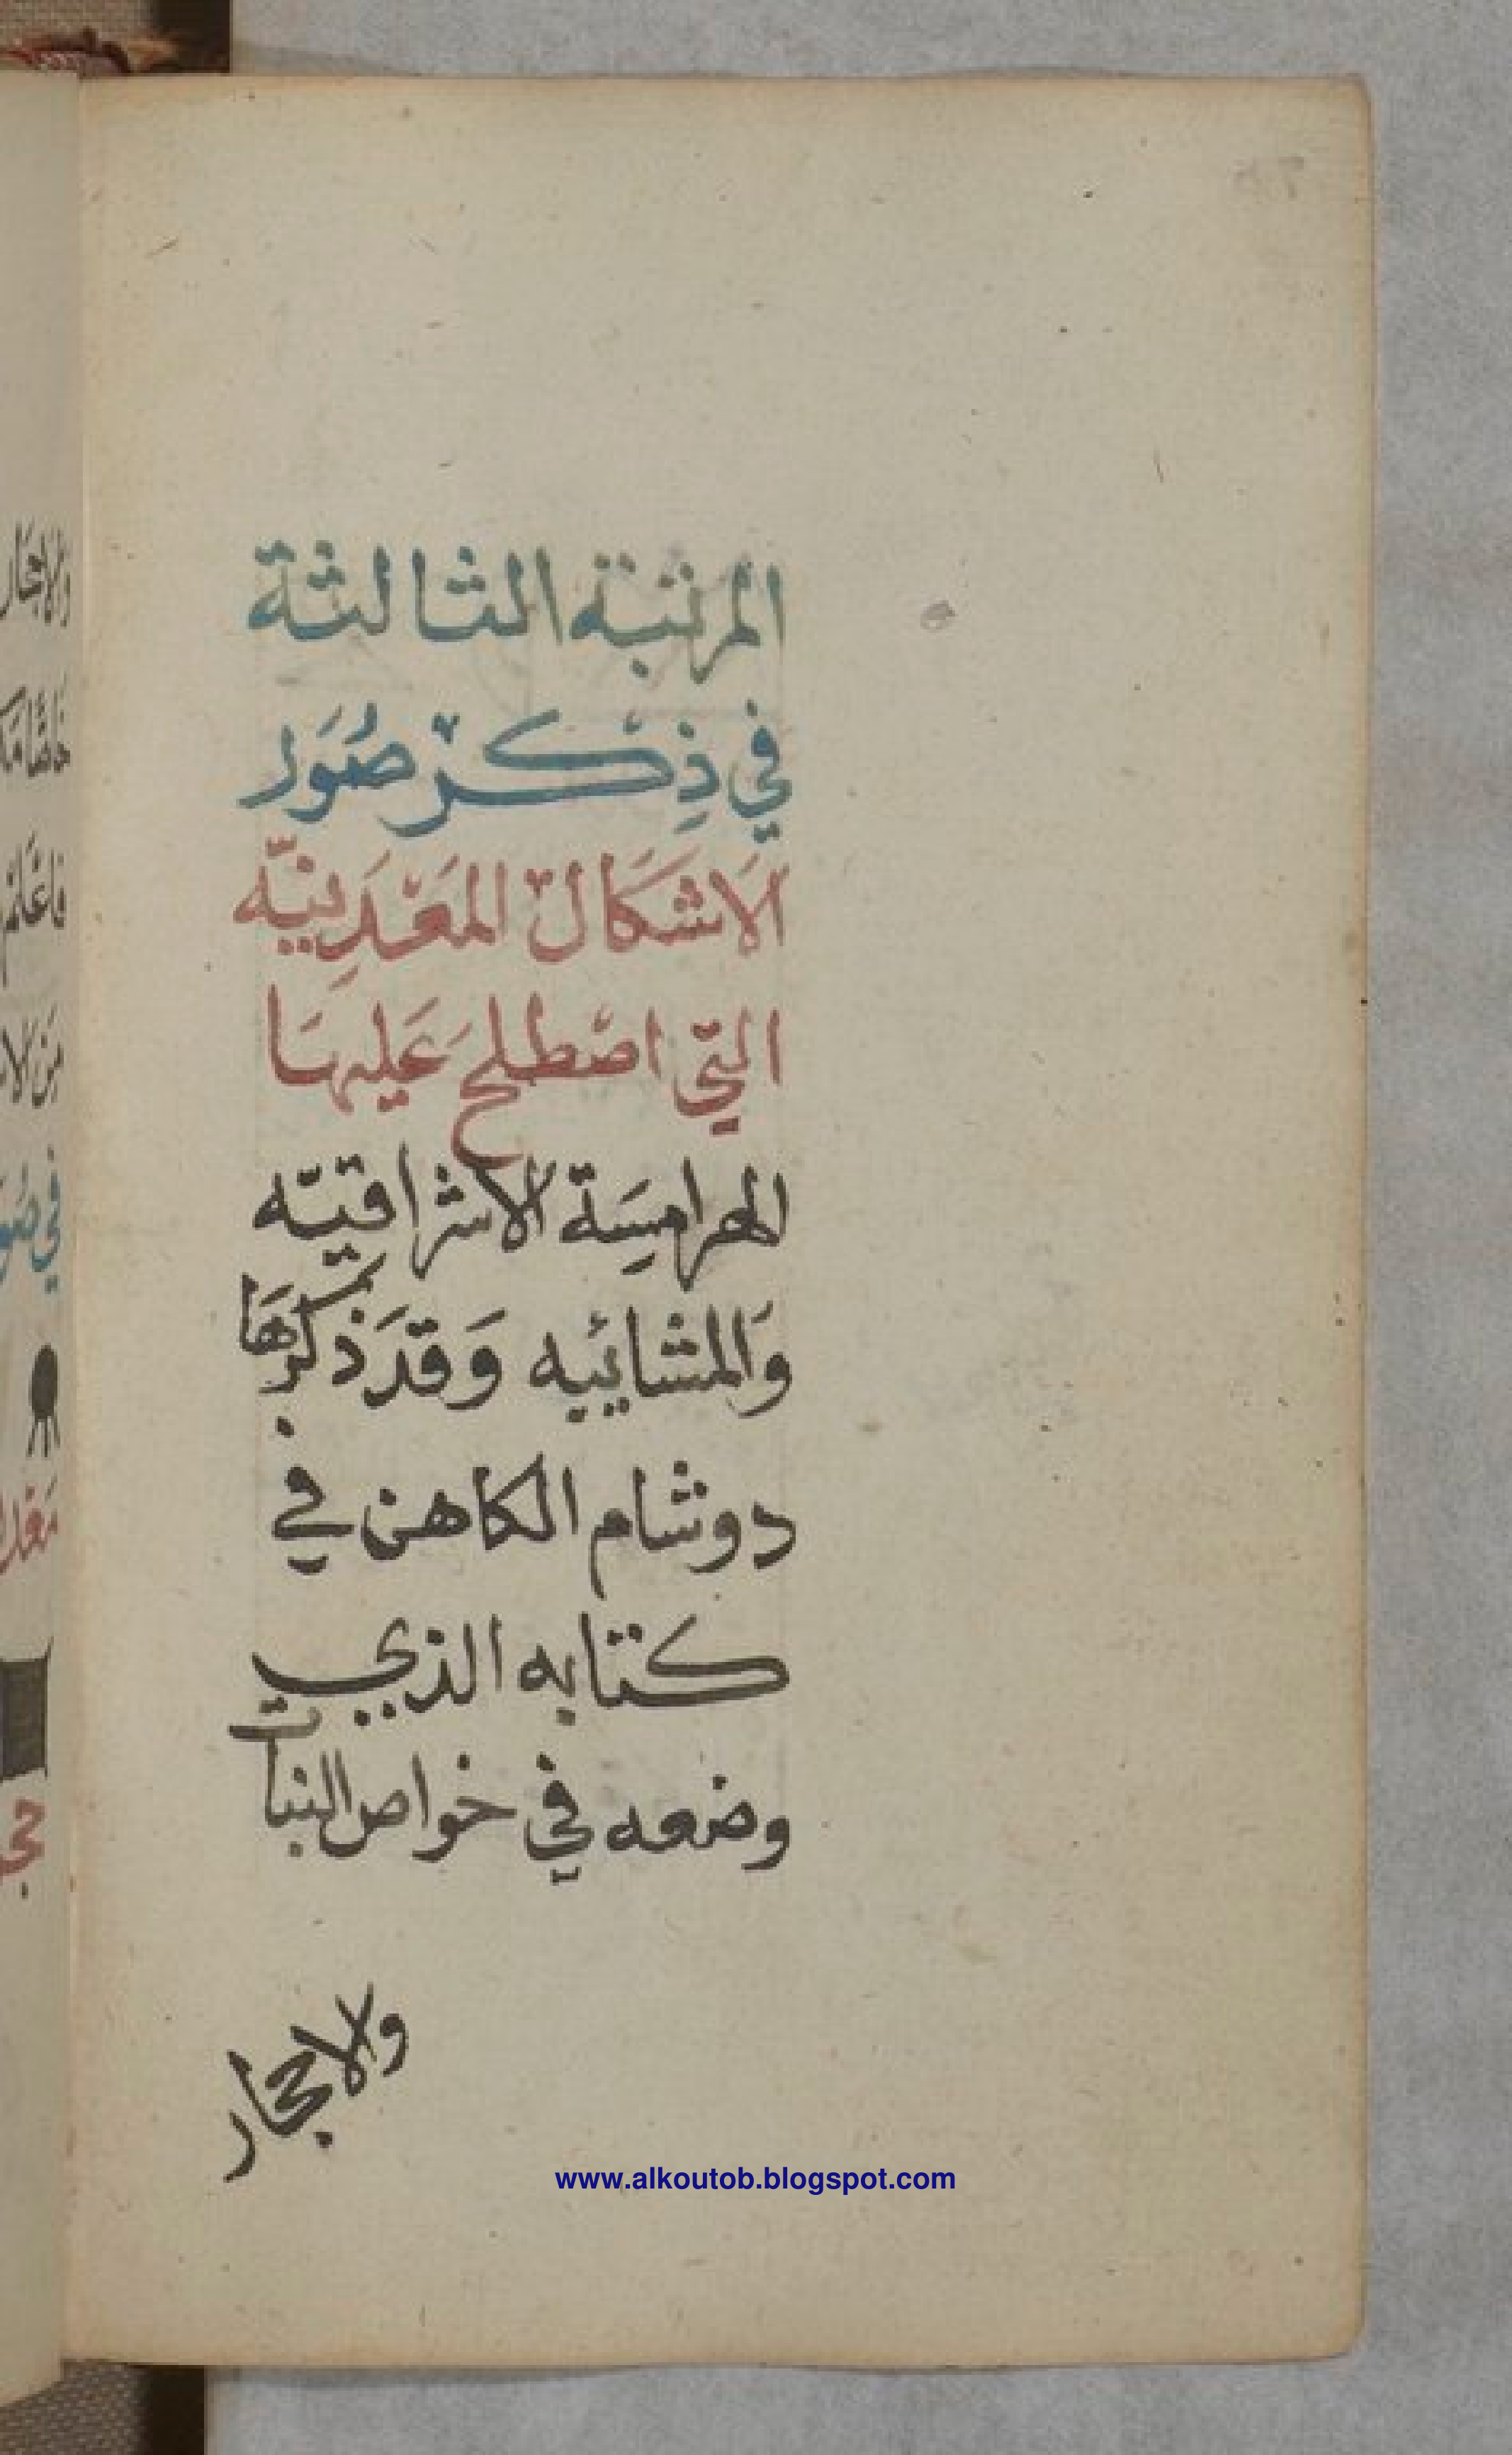 المرتبة الثالثة
في ذِكرْ صُوَر
الَاشكَالْ المَعْدَنِيّه
التي اصْطلحَ عَليهَا
الهرامسَة الاشراقيّه
وَالمشائيه وَقدَ ذكرهَا
دوشام الكاهن في
كتابه الذي
وضعه في خواص النبات
والاحجار
www.alkoutob.blogspot.com